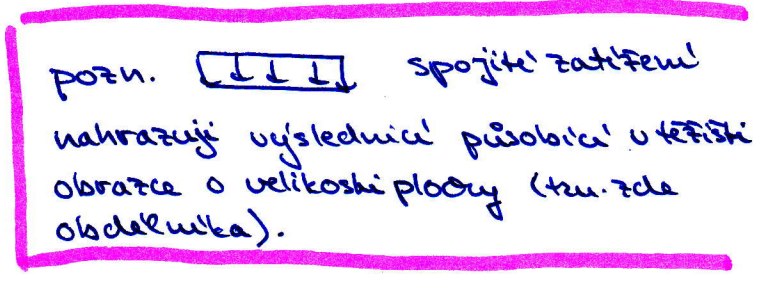 pozn. spojité zatížení
nahrazuji výslednicí působící v těžišti
obrazce o velikosti plochy (tzn. zde
obdélníka).